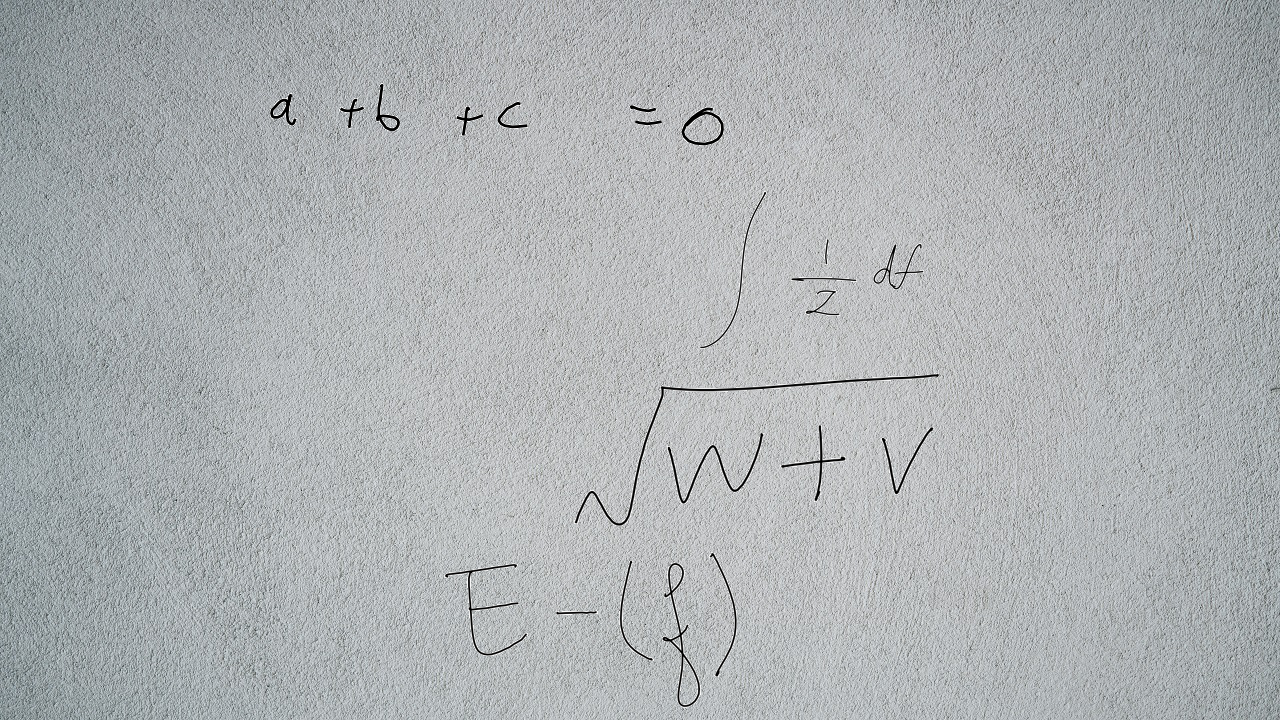 a + b + c = 0
∫ 1/2 df
√(w + v)
E - (f)